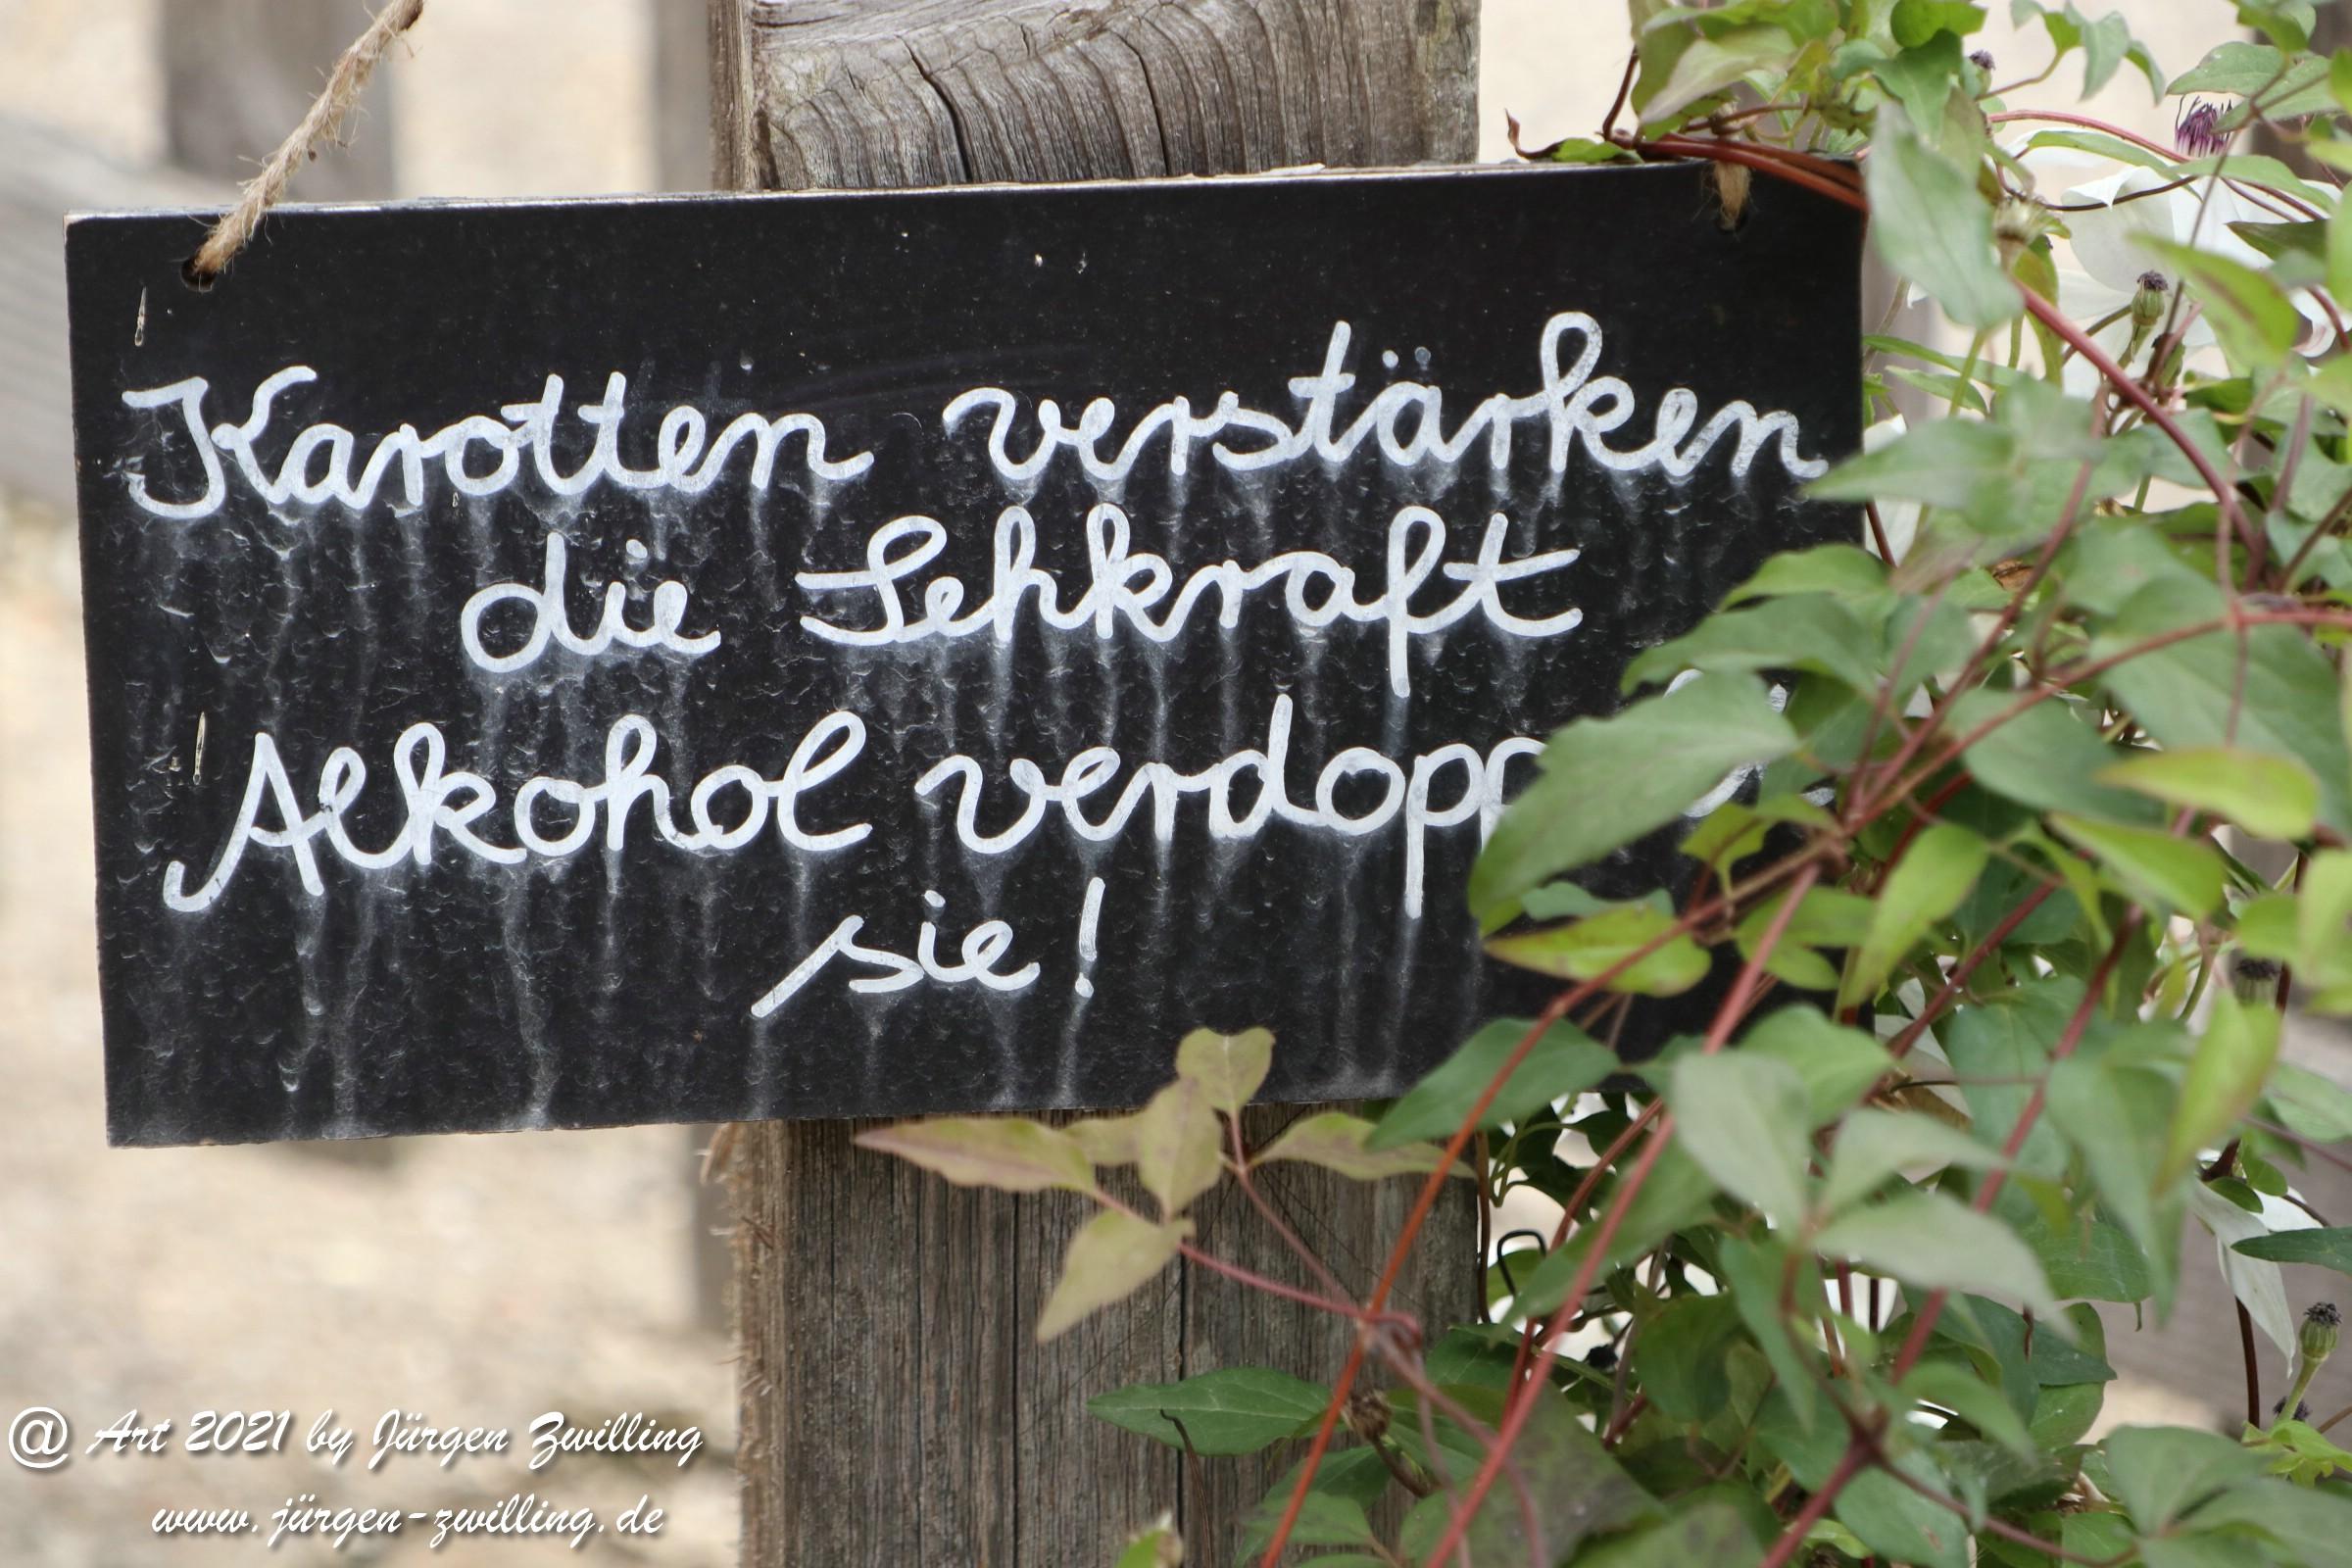 Karotten verstärken
die Sehkraft
Alkohol
sie!
@ Art 2021 by Jürgen Zwilling
www.jürgen-zwilling.de